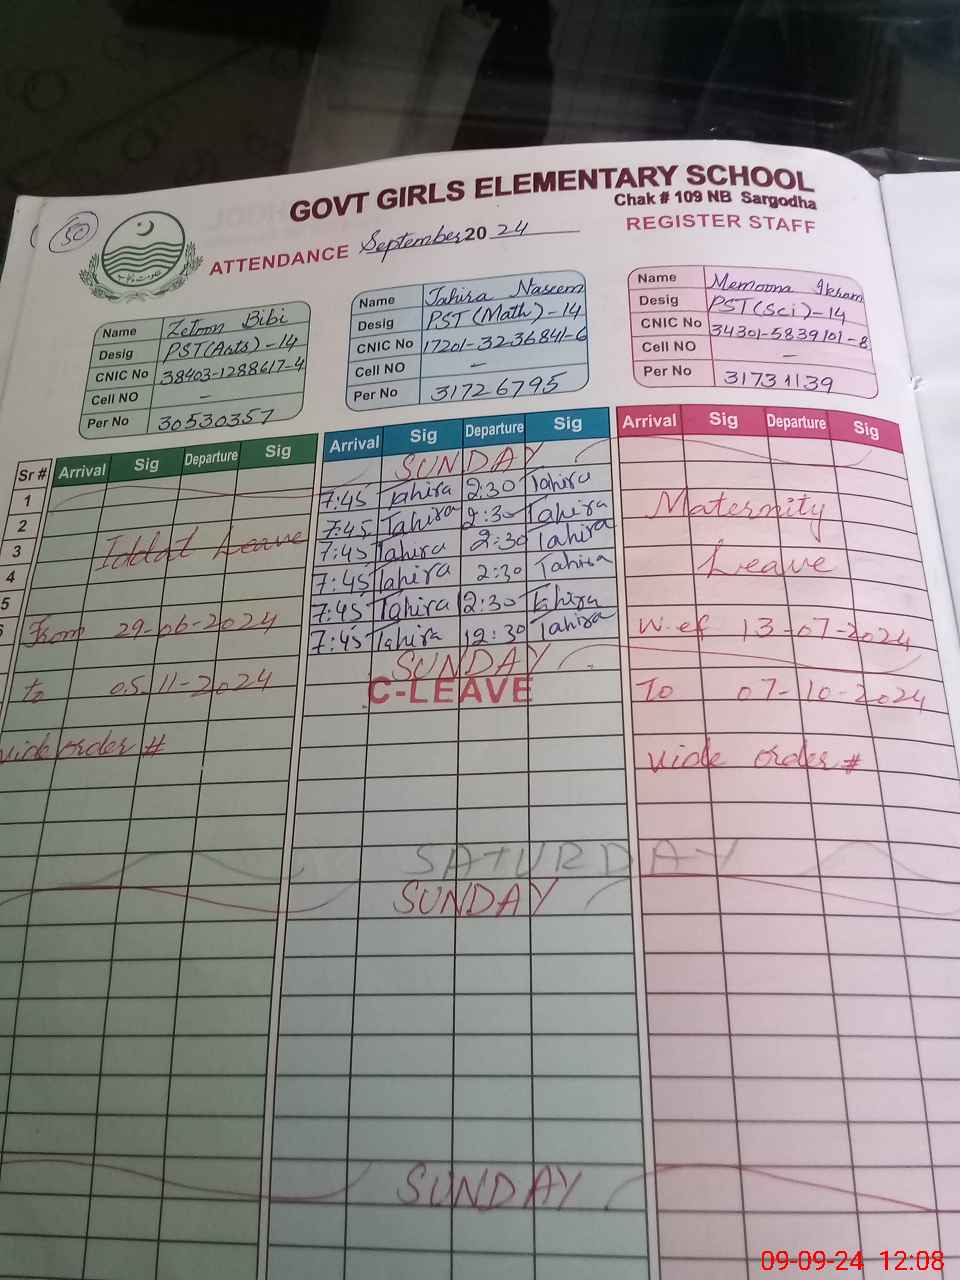 50
GOVT GIRLS ELEMENTARY SCHOOL
Chak # 109 NB Sargodha
ATTENDANCE September 2024 REGISTER STAFF
حکومت پنجاب
Name Zetoon Bibi
Desig PST(Arts)-14
CNIC No 38403-1288617-4
Cell NO -
Per No 30530357
Name Tahira Naseem
Desig PST(Math)-14
CNIC No 17201-3236841-6
Cell NO -
Per No 31726795
Name Memoona Ikram
Desig PST(Sci)-14
CNIC No 34301-5839101-8
Cell NO -
Per No 31731139
Sr # Arrival Sig Departure Sig Arrival Sig Departure Sig Arrival Sig Departure Sig
1 SUNDAY
2 7:45 Tahira 2:30 Tahira
3 7:45 Tahira 2:30 Tahira
4 7:45 Tahira 2:30 Tahira
5 7:45 Tahira 2:30 Tahira
7:45 Tahira 2:30 Tahira
7:45 Tahira 12:30 Tahira
SUNDAY
C-LEAVE
SATURDAY
SUNDAY
SUNDAY
Iddat Leave
From 29-06-2024
to 05-11-2024
vide order #
Maternity
Leave
w.ef 13-07-2024
To 07-10-2024
vide order #
09-09-24 12:08